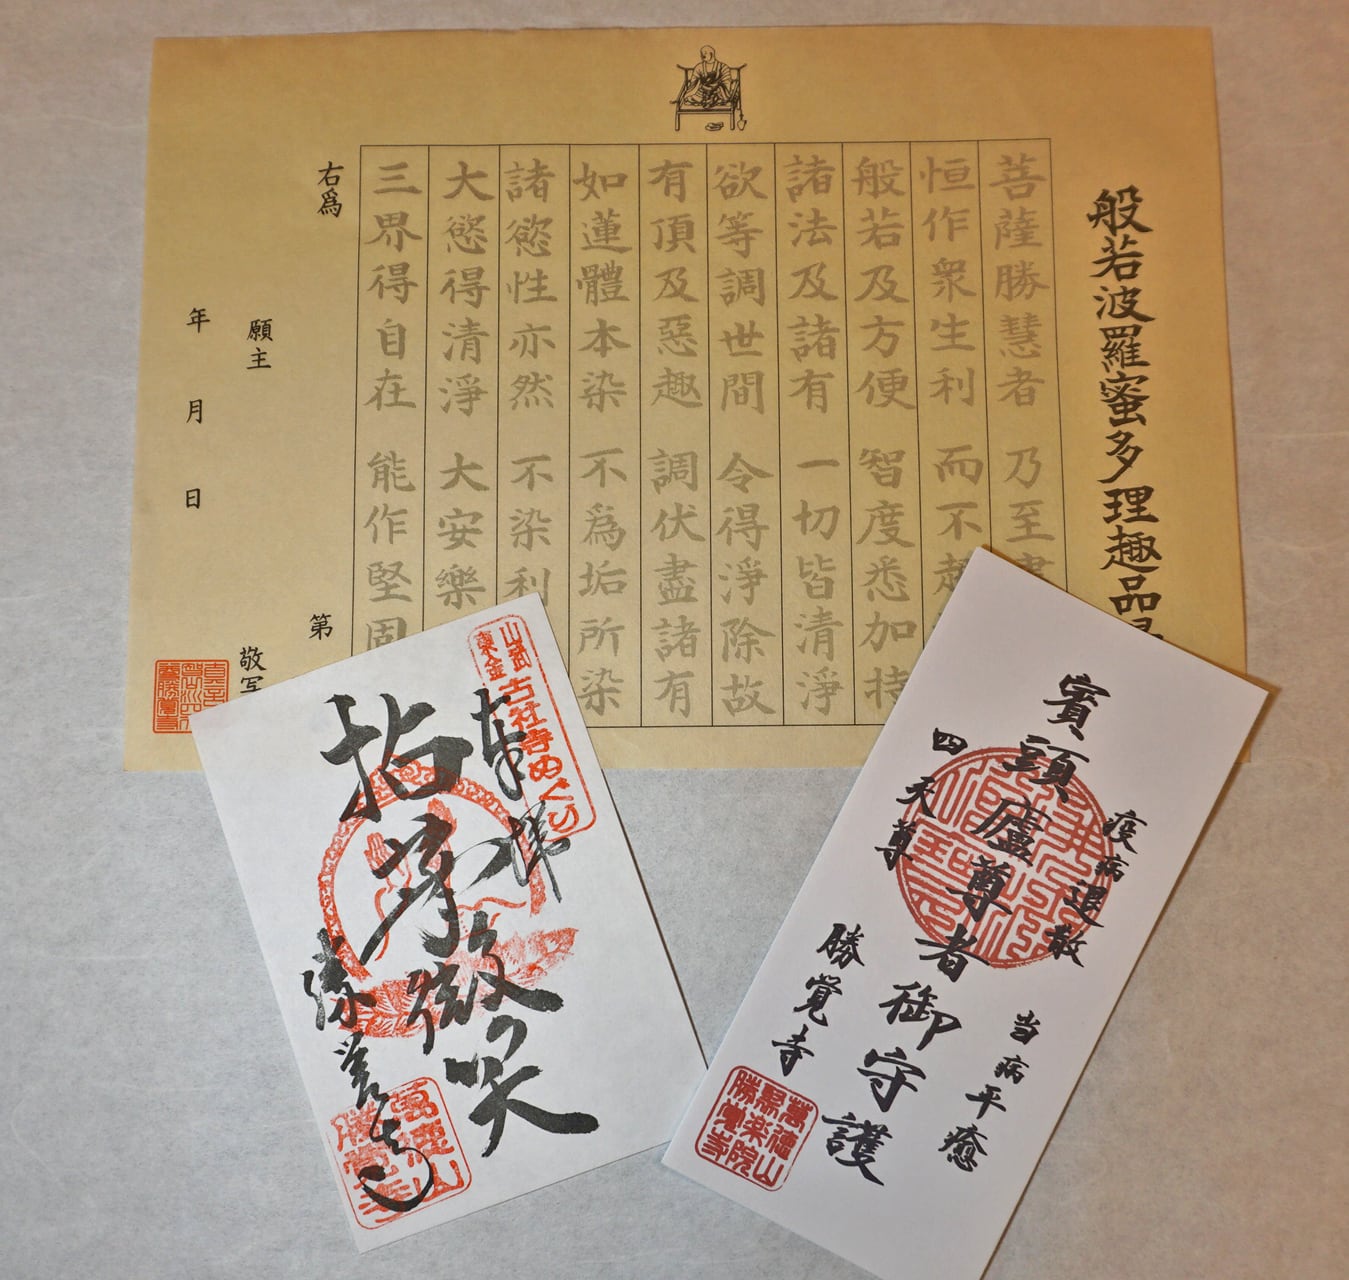 般若波羅蜜多理趣品
菩薩勝慧者 乃至
恒作衆生利 而不
般若及方便 智度悉加持
諸法及諸有 一切皆清淨
欲等調世間 令得淨除故
有頂及惡趣 調伏盡諸有
如蓮體本染 不爲垢所染
諸慾性亦然 不染利
大慾得清淨 大安樂
三界得自在 能作堅固
右爲
第
願主
敬写
年 月 日
山武
東金
古社寺めぐり
奉拝
拈華微笑
勝覚寺
萬徳山
勝覚寺
疫病退散
当病平癒
賓頭廬尊者御守護
四天尊
勝覚寺
萬徳山
聚楽院
勝覚寺